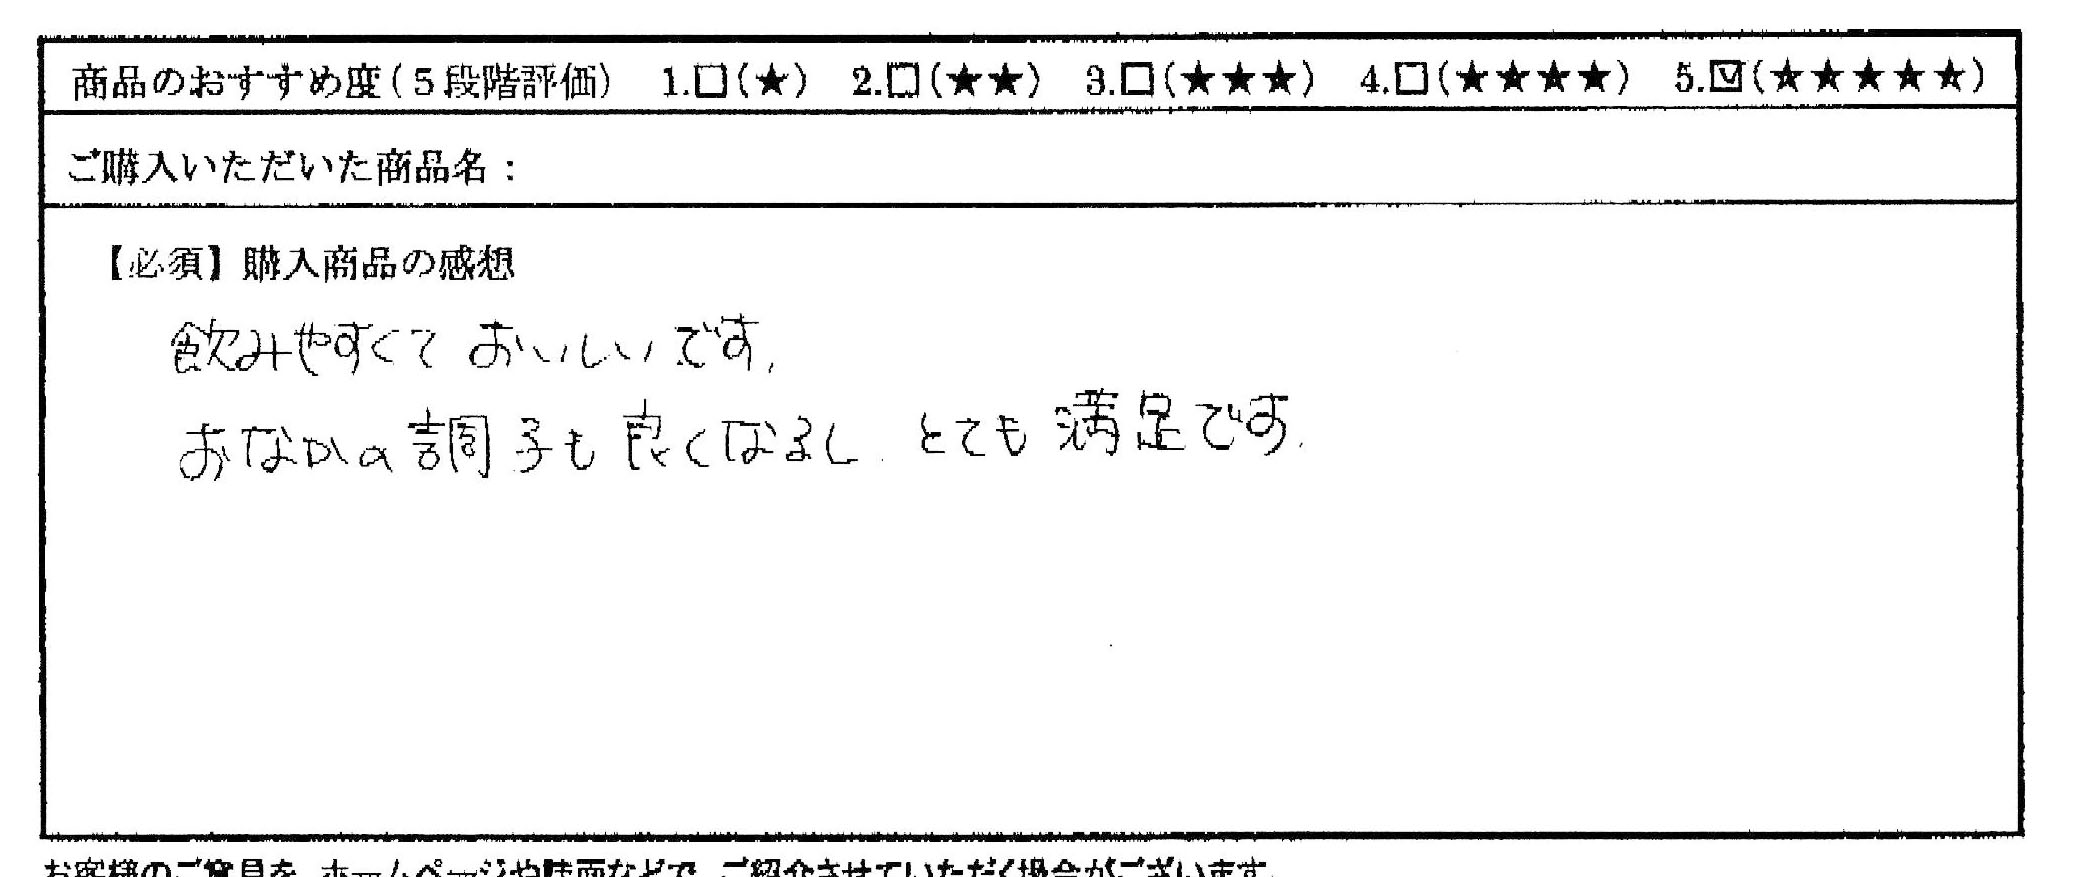 商品のおすすめ度(5段階評価) 1.□(★) 2.□(★★) 3.□(★★★) 4.□(★★★★) 5.☑(★★★★★)
ご購入いただいた商品名:
【必須】購入商品の感想
飲みやすくておいしいです。
おなかの調子も良くなるし、とても満足です。
お客様のご意見を、ホームページや誌面などで、ご紹介させていただく場合がございます。